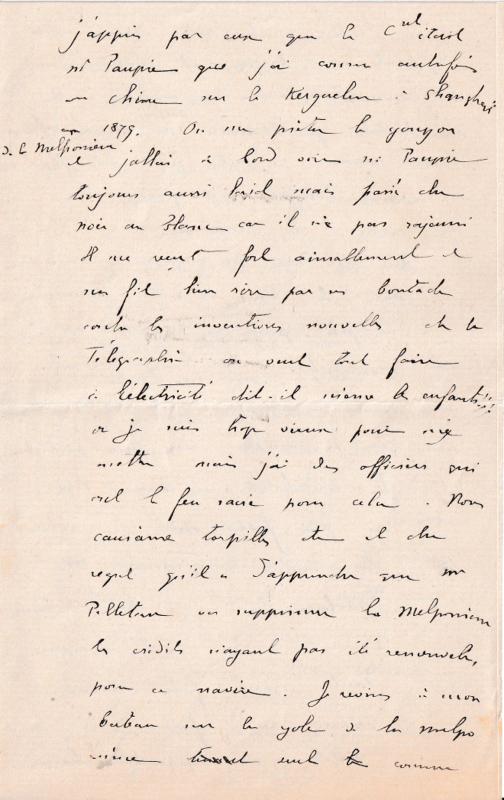 j'appris par eux que le Cnt était
Mr Paupie que j'ai connu autrefois
en Chine sur le Kerguelen à Shanghaï
en 1879. On me prêta le youyou
de la Melpomène
et j'allai à bord voir Mr Paupie
toujours aussi laid mais passé du
noir au blanc car il n'a pas rajeuni
Il me reçut fort aimablement et
me fit bien rire par ses boutades
contre les inventions nouvelles et la
Télégraphie on veut tout faire
à l'électricité dit-il même les enfants!!!
or je suis trop vieux pour m'y
mettre mais j'ai des officiers qui
ont le feu sacré pour cela. Nous
causâmes torpilles etc et du
regret qu'il a d'apprendre que Mr
Pelletan va supprimer la Melpomène
les crédits n'ayant pas été renouvelés
pour ce navire. Je revins à mon
bateau sur la yole de la Melpo
mène seul comme